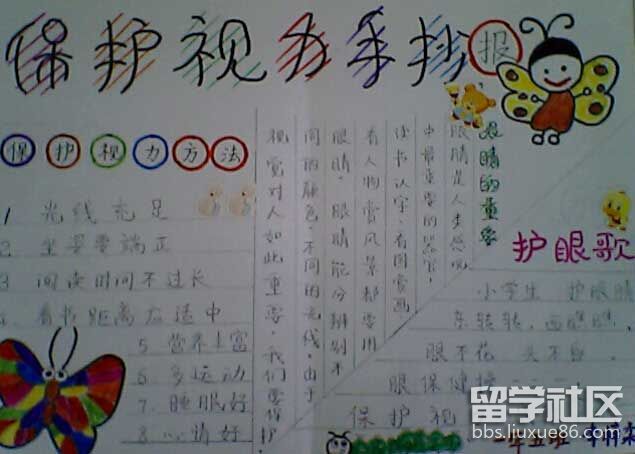 保护视力手抄报
保护视力方法
1 光线充足
2 坐姿要端正
3 阅读时间不过长
4. 看书距离应适中
5 营养丰富
6. 多运动
7. 睡眠好
8. 心情好
眼睛的重要
眼睛是人类感觉
中最重要的器官,
读书认字、看图赏画
看人物赏风景都要用
眼睛。眼睛能分辨别不
同的颜色,不同的光线,由于
视觉对人如此重要,我们要保护
护眼歌
小学生 护眼睛
东转转,西瞧瞧,
眼不花 头不
眼保健操
保护视
一年五班
留学社区
bbs.liuxue86.com